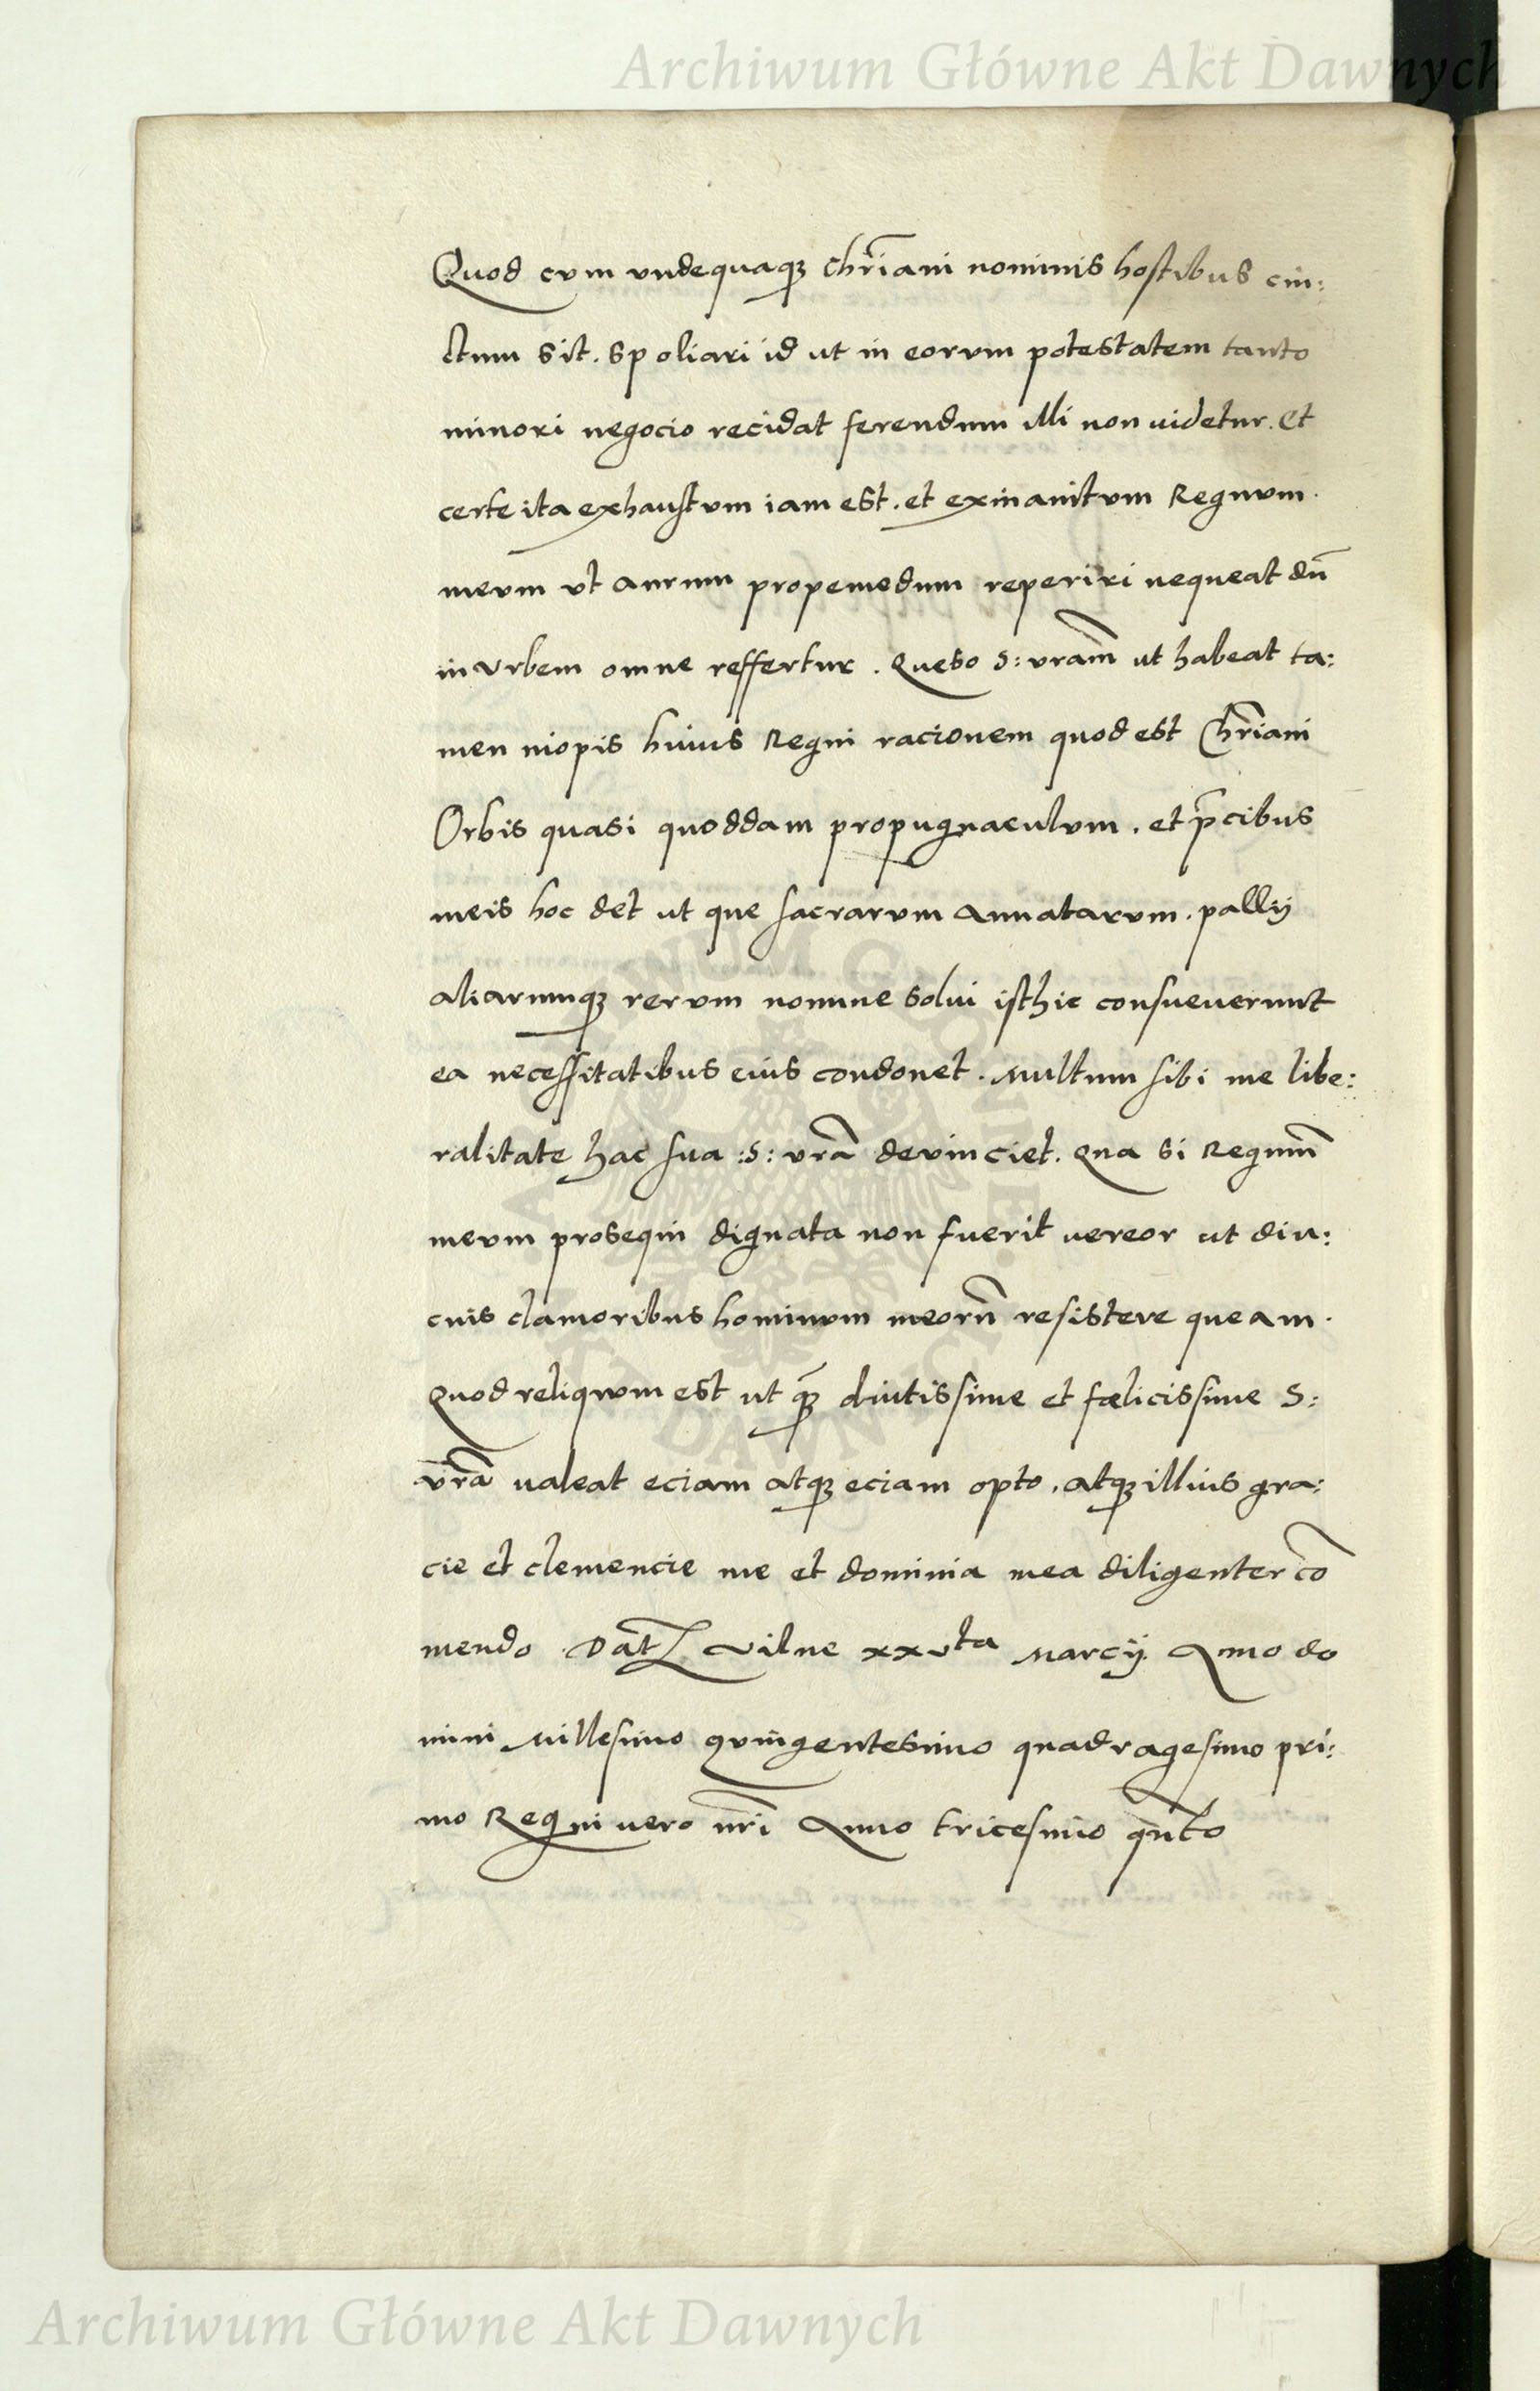 Archiwum Główne Akt Dawnych
Quod cvm vndequaqꝫ chr̃iani nominis hostibus cin:
ctum sit. spoliari id ut in eorvm potestatem tanto
minori negocio recidat ferendum illi non uidetur. Et
certe ita exhaustvm iam est. et exinanitvm Regnvm
mevm vt aurum propemodum reperiri nequeat dũ
in vrbem omne reffertur. Queso S: vram̃ ut habeat ta:
men inopis huius Regni racionem quod est Chr̃iani
Orbis quasi quoddam propugnaculvm. et p̃cibus
meis hoc det ut que sacrarvm Annatarvm. pallij
aliarumqꝫ rervm nomine solui isthic consueuerunt
ea necessitatibus eius condonet. Multum sibi me libe:
ralitate hac sua :S: vrã devinciet. Qua si Regnum̃
mevm prosequi dignata non fuerit uereor ut diu:
cius clamoribus hominvm meorũ resistere queam.
Quod reliqvom est ut qꝫ̃ diutissime et fœlicissime S:
vrã ualeat eciam atqꝫ eciam opto. atqꝫ illius gra:
cie et clemencie me et dominia mea diligenter cõ
mendo. Dat̃ Vilne xxvta Marcij. Anno do
mini Millesimo qvingentesimo quadragesimo pri:
mo Regni uero nr̃i Anno tricesimo qũto
Archiwum Główne Akt Dawnych